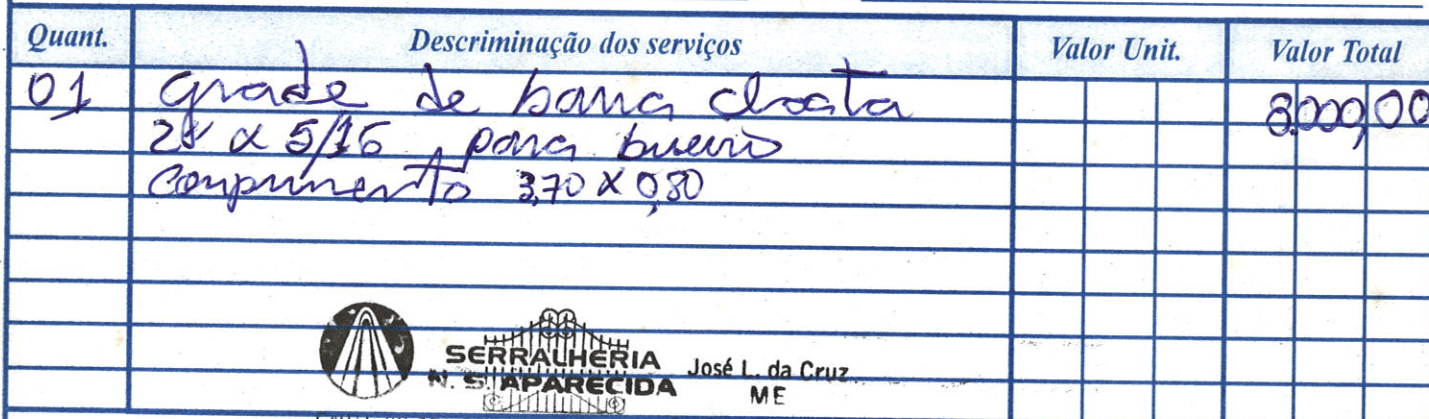 Quant. Descriminação dos serviços Valor Unit. Valor Total
01 grade de barra chata 8.000,00
2" x 5/16 para bueiro
Comprimento 3,70 x 0,80
SERRALHERIA
N. S. APARECIDA
José L. da Cruz
ME